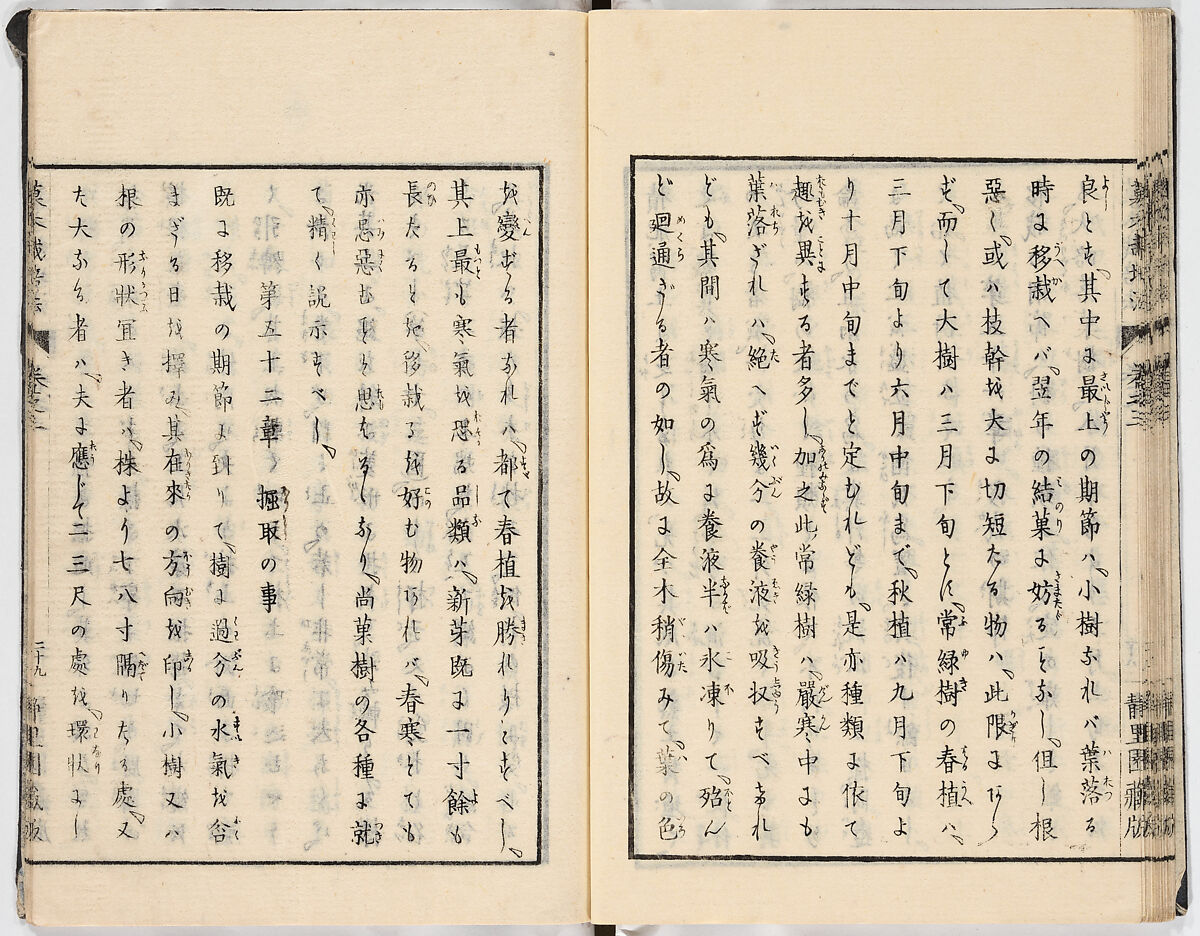 良とす、其中に最上の期節ハ、小樹なれバ葉落る
時に移栽へバ、翌年の結菓に妨るゝなし、但し根
惡く、或ハ枝幹を大に切短たる物ハ、此限にあら
ず、而して大樹ハ三月下旬とに、常緑樹の春植ハ、
三月下旬より六月中旬まで、秋植ハ九月下旬よ
り十月中旬までと定むれども、是亦種類に依て
趣を異する者多し、加之此常緑樹ハ、嚴寒中にも
葉落ざれハ、絶へず幾分の養液を吸収すべけれ
ども、其間ハ寒氣の爲に養液半ハ氷凍りて、殆ん
ど廻通ざる者の如し、故に全木稍傷みて、葉の色
を變ずる者なれハ、都て春植を勝れりとすべし、
其上最も寒氣を恐る品類ハ、新芽既に一寸餘も
長たると雖、移栽るを好む物あれバ、春寒とても
亦忌惡むゝと思なるしあり、尚菓樹の各種に就
て、精く説示すべし、
第五十二章 掘取の事
既に移栽の期節に到りて、樹に過分の水氣を含
まざる日を擇み、其在來の方向を印し、小樹又ハ
根の形狀宜き者ハ、株より七八寸隔りたる處、又
た大なる者ハ、夫に應じて二三尺の處を、環狀に
靜里園藏版
卷之二
二十九